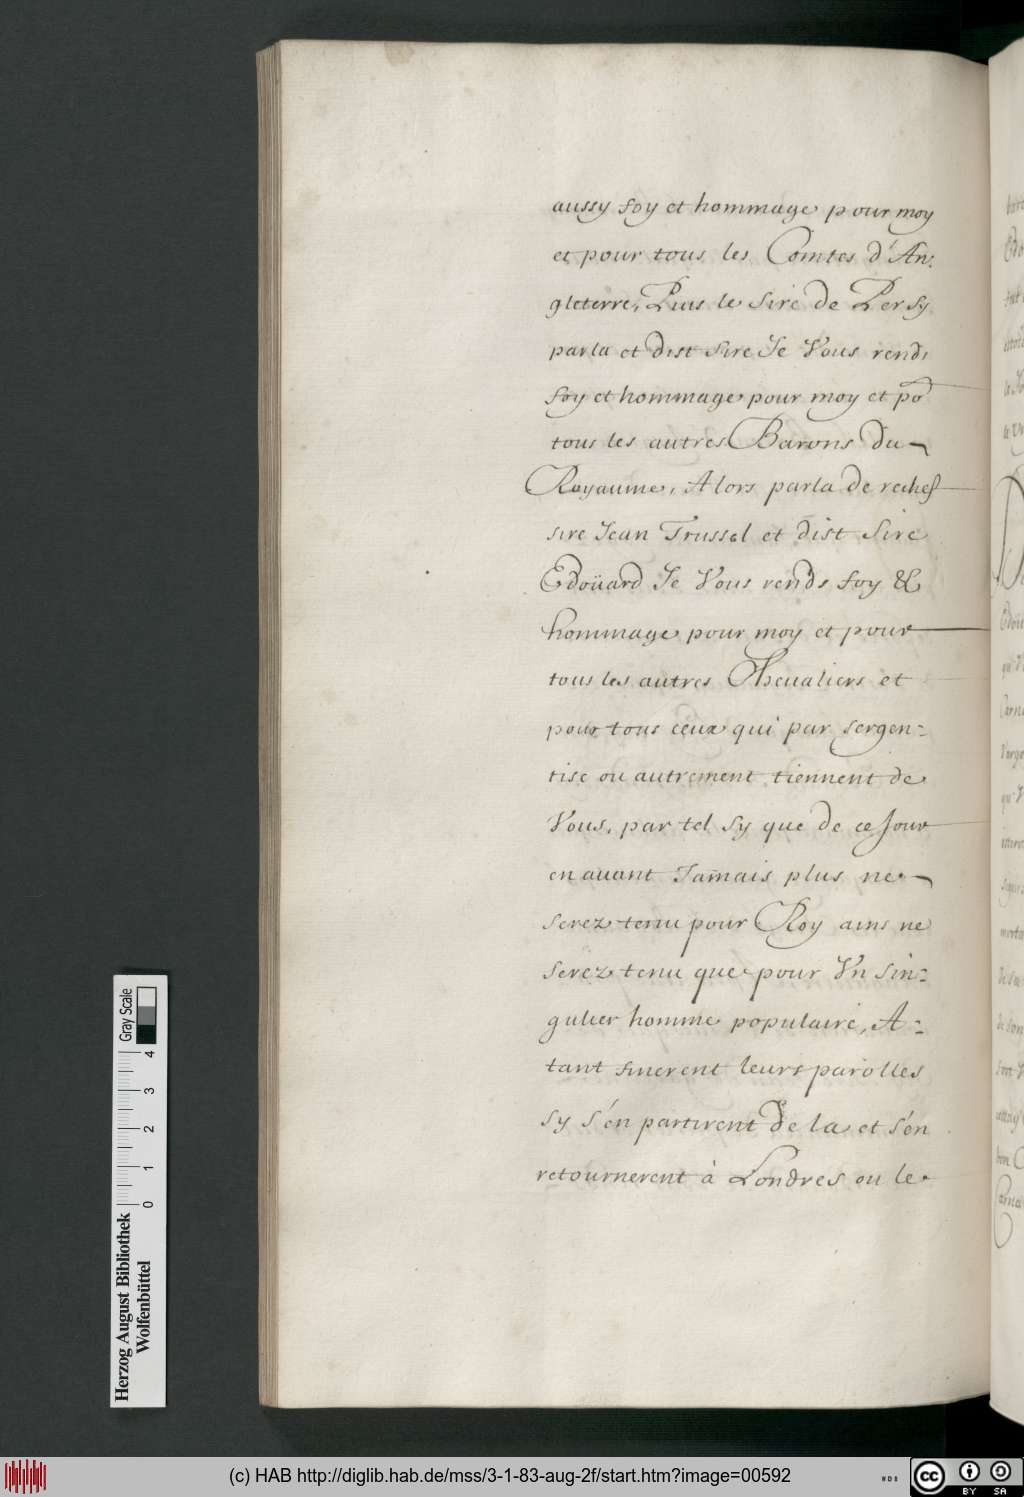 aussy foy et hommage pour moy
et pour tous les Comtes d'An:
gleterre, Puis le Sire de Persy
parla et dist Sire Je Vous rends
foy et hommage pour moy et po^r
tous les autres Barons du
Royaume, Alors parla de rechef
sire Jean Trussel et dist Sire
Edoüard Je Vous rends foy &
hommage pour moy et pour
tous les autres Cheualiers et
pour tous ceux qui par sergen:
tise ou autrement tiennent de
Vous, par tel sy que de ce Jour
en auant Jamais plus ne
serez tenu pour Roy ains ne
serez tenu que pour Vn sin:
gulier homme populaire, A:
tant finerent leurs parolles
sy s'en partirent de la et s'en
retournerent à Londres ou le
Herzog August Bibliothek
Wolfenbüttel
0 1 2 3 4
Gray Scale
(c) HAB http://diglib.hab.de/mss/3-1-83-aug-2f/start.htm?image=00592
WDB
cc BY SA